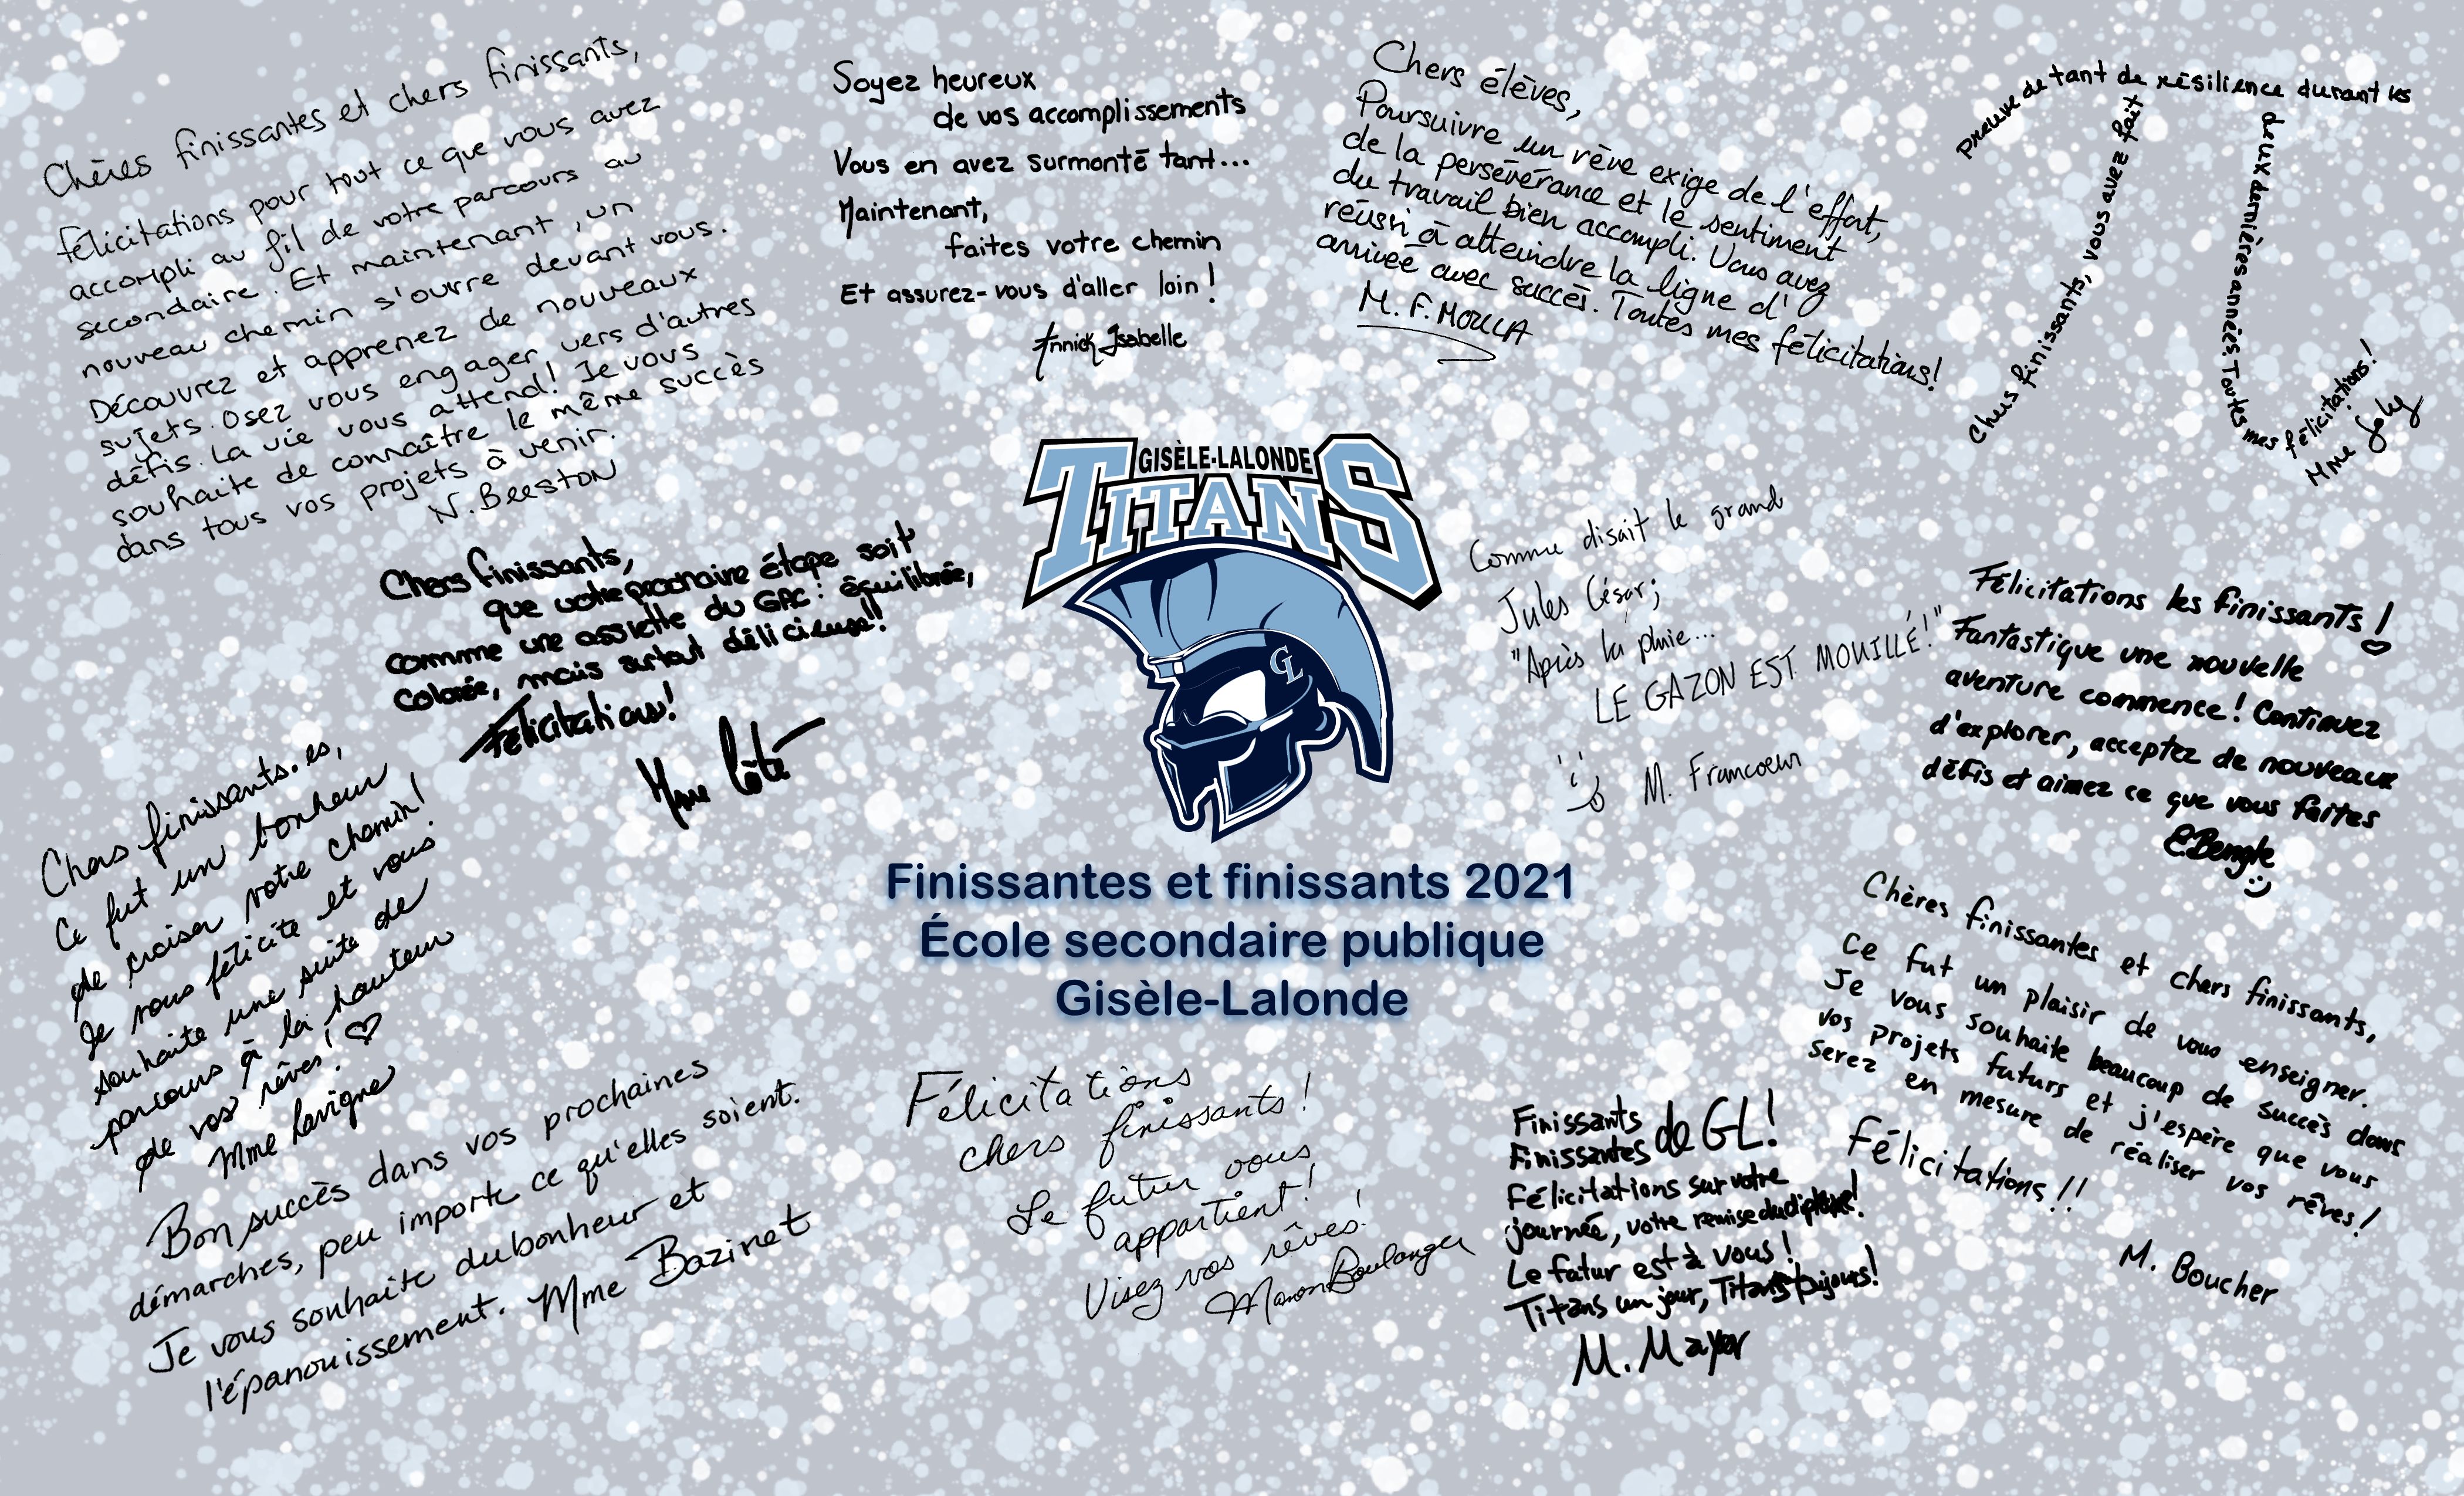 Chères finissantes et chers finissants,
félicitations pour tout ce que vous avez
accompli au fil de votre parcours au
secondaire. Et maintenant, un
nouveau chemin s'ouvre devant vous.
Découvrez et apprenez de nouveaux
sujets. Osez vous engager vers d'autres
défis. La vie vous attend! Je vous
souhaite de connaître le même succès
dans tous vos projets à venir.
N. Beeston
Soyez heureux
de vos accomplissements
Vous en avez surmonté tant...
Maintenant,
faites votre chemin
Et assurez-vous d'aller loin!
Annick Isabelle
Chers élèves,
Poursuivre un rêve exige de l'effort,
de la persévérance et le sentiment
du travail bien accompli. Vous avez
réussi à atteindre la ligne d'
arrivée avec succès. Toutes mes félicitations!
M. F. MOULLA
Chers finissants, vous avez fait
preuve de tant de résilience durant les
deux dernières années. Toutes
mes félicitations!
Mme Joly
GISÈLE-LALONDE
TITANS
GL
Chers finissants,
que votre prochaine étape soit
comme une assiette du GAC : équilibrée,
colorée, mais surtout délicieuse!
Félicitations!
Mme Côté
Comme disait le grand
Jules César;
"Après la pluie...
LE GAZON EST MOUILLÉ!"
M. Francoeur
Félicitations les finissants!
Fantastique une nouvelle
aventure commence! Continuez
d'explorer, acceptez de nouveaux
défis et aimez ce que vous faites
E.Bengle
Chers finissants.es,
Ce fut un bonheur
de croiser votre chemin!
Je vous félicite et vous
souhaite une suite de
parcours à la hauteur
de vos rêves!
Mme Lavigne
Finissantes et finissants 2021
École secondaire publique
Gisèle-Lalonde
Chères finissantes et chers finissants,
Ce fut un plaisir de vous enseigner.
Je vous souhaite beaucoup de succès dans
vos projets futurs et j'espère que vous
serez en mesure de réaliser vos rêves!
Félicitations!!
M. Boucher
Bon succès dans vos prochaines
démarches, peu importe ce qu'elles soient.
Je vous souhaite du bonheur et
l'épanouissement. Mme Bazinet
Félicitations
chers finissants!
Le futur vous
appartient!
Visez vos rêves!
Manon Boulanger
Finissants
Finissantes de GL!
Félicitations sur votre
journée, votre remise du diplôme!
Le futur est à vous!
Titans un jour, Titans toujours!
M. Mayer